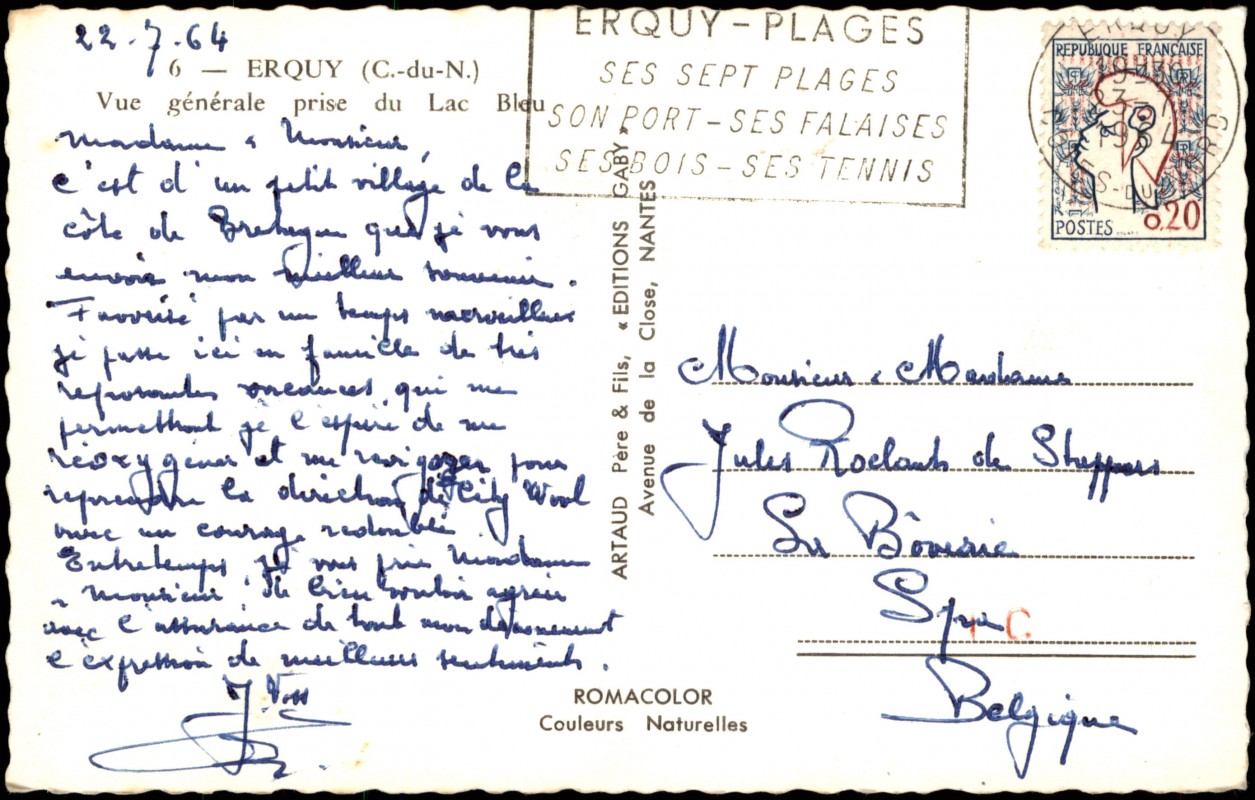 22.7.64
6 — ERQUY (C.-du-N.)
Vue générale prise du Lac Bleu
Madame & Monsieur,
C'est d'un petit village de la
côte de Bretagne que je vous
envoie mon meilleur souvenir.
Favorisé par un temps merveilleux
je passe ici en famille de très
reposantes vacances, qui me
permettront je l'espère de me
réoxygéner et me revigorer pour
reprendre la direction de City Wool
avec un courage redoublé
Entretemps je vous prie Madame
& Monsieur de bien vouloir agréer
avec l'assurance de tout mon dévouement
l'expression de meilleurs sentiments.
ERQUY – PLAGES
SES SEPT PLAGES
SON PORT – SES FALAISES
SES BOIS – SES TENNIS
ERQUY
1964
RÉPUBLIQUE FRANÇAISE
POSTES 0,20
ARTAUD Père & Fils, « EDITIONS GABY »
Avenue de la Close, NANTES
Monsieur & Madame
Jules Roelants de Stappers
La Bôverie
Spa
Belgique
ROMACOLOR
Couleurs Naturelles